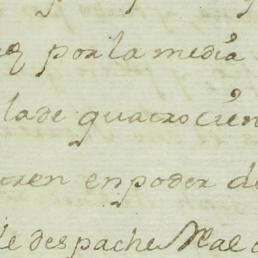 por la media
la de quatrocien
en poder de
le despache Real